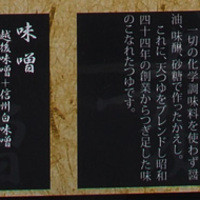 一切の化学調味料を使わず醤
油、味醂、砂糖で作ったかえし。
これに、天つゆをブレンドし昭和
四十四年の創業からつぎ足した味
のこなれたつゆです。
味噌
越後味噌+信州白味噌